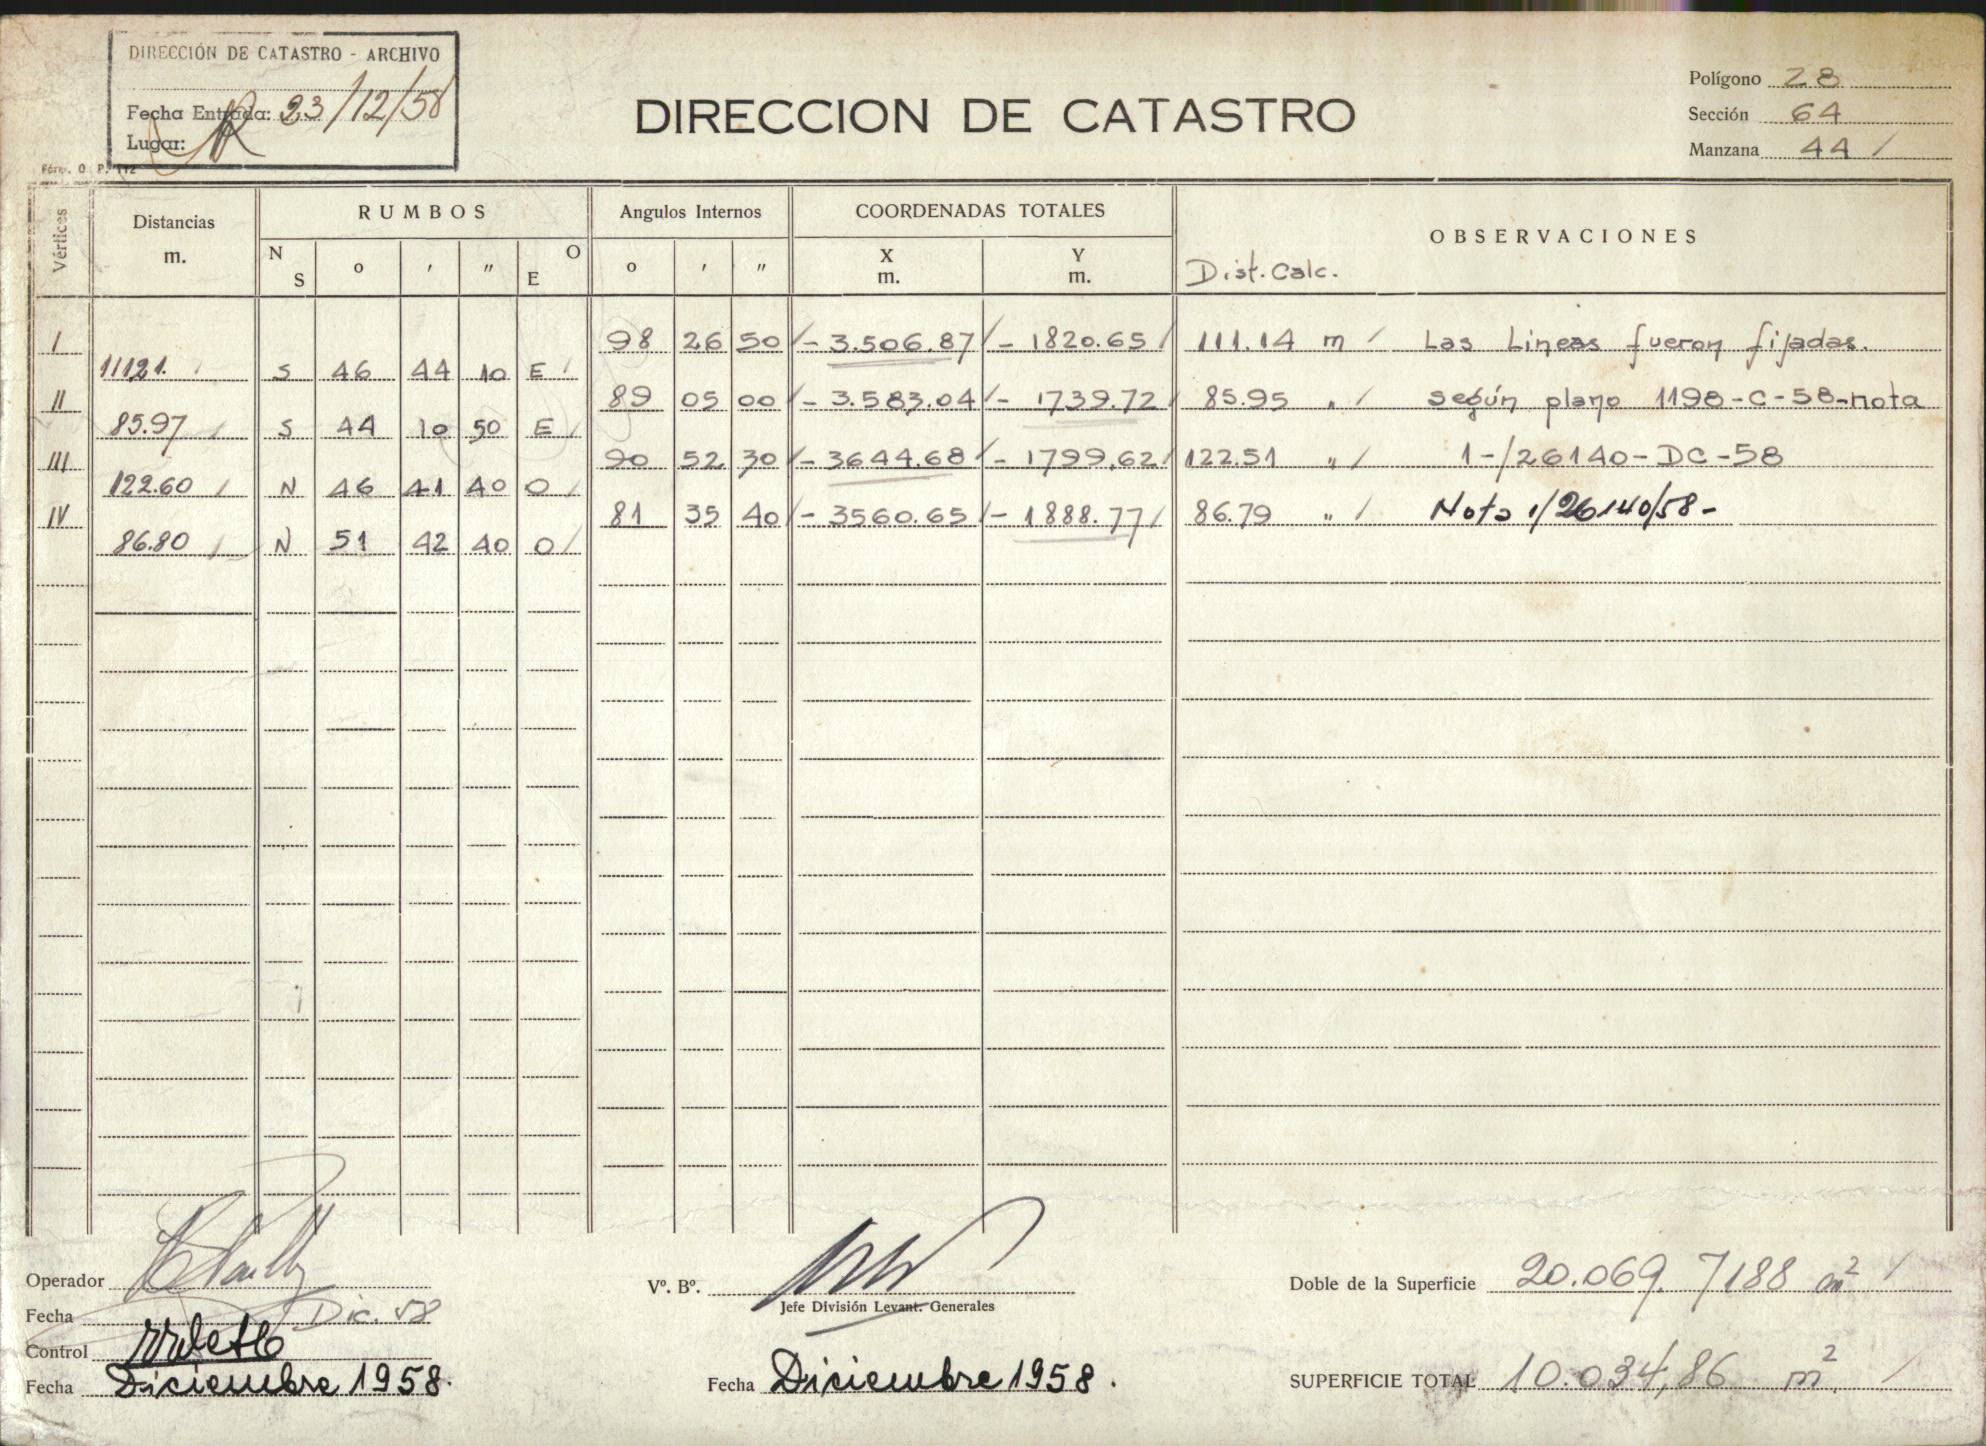 DIRECCIÓN DE CATASTRO - ARCHIVO
Fecha Entrada: 23/12/58
Lugar:
Fórm. O. P. 112
DIRECCION DE CATASTRO
Polígono 28
Sección 64
Manzana 44 /
Vértices Distancias m. RUMBOS Angulos Internos COORDENADAS TOTALES OBSERVACIONES
N S o ' " O E o ' " X m. Y m. Dist. Calc.
I 98 26 50 / - 3.506.87 / - 1820.65 / 111.14 m / Las Lineas fueron fijadas.
111.21. / S 46 44 10 E /
II 89 05 00 / - 3.583.04 / - 1739.72 / 85.95 " / según plano 1198-C-58-nota
85.97 / S 44 10 50 E /
III 90 52 30 / - 3644.68 / - 1799.62 / 122.51 " / 1-/26140-DC-58
122.60 / N 46 41 40 O /
IV 81 35 40 / - 3560.65 / - 1888.77 / 86.79 " / Nota 1/26140/58-
86.80 / N 51 42 40 O /
Operador
Fecha Dic. 58
Control
Fecha Diciembre 1958.
Vº. Bº.
Jefe División Levant. Generales
Fecha Diciembre 1958.
Doble de la Superficie 20.069.7188 m² /
SUPERFICIE TOTAL 10.034,86 m². /